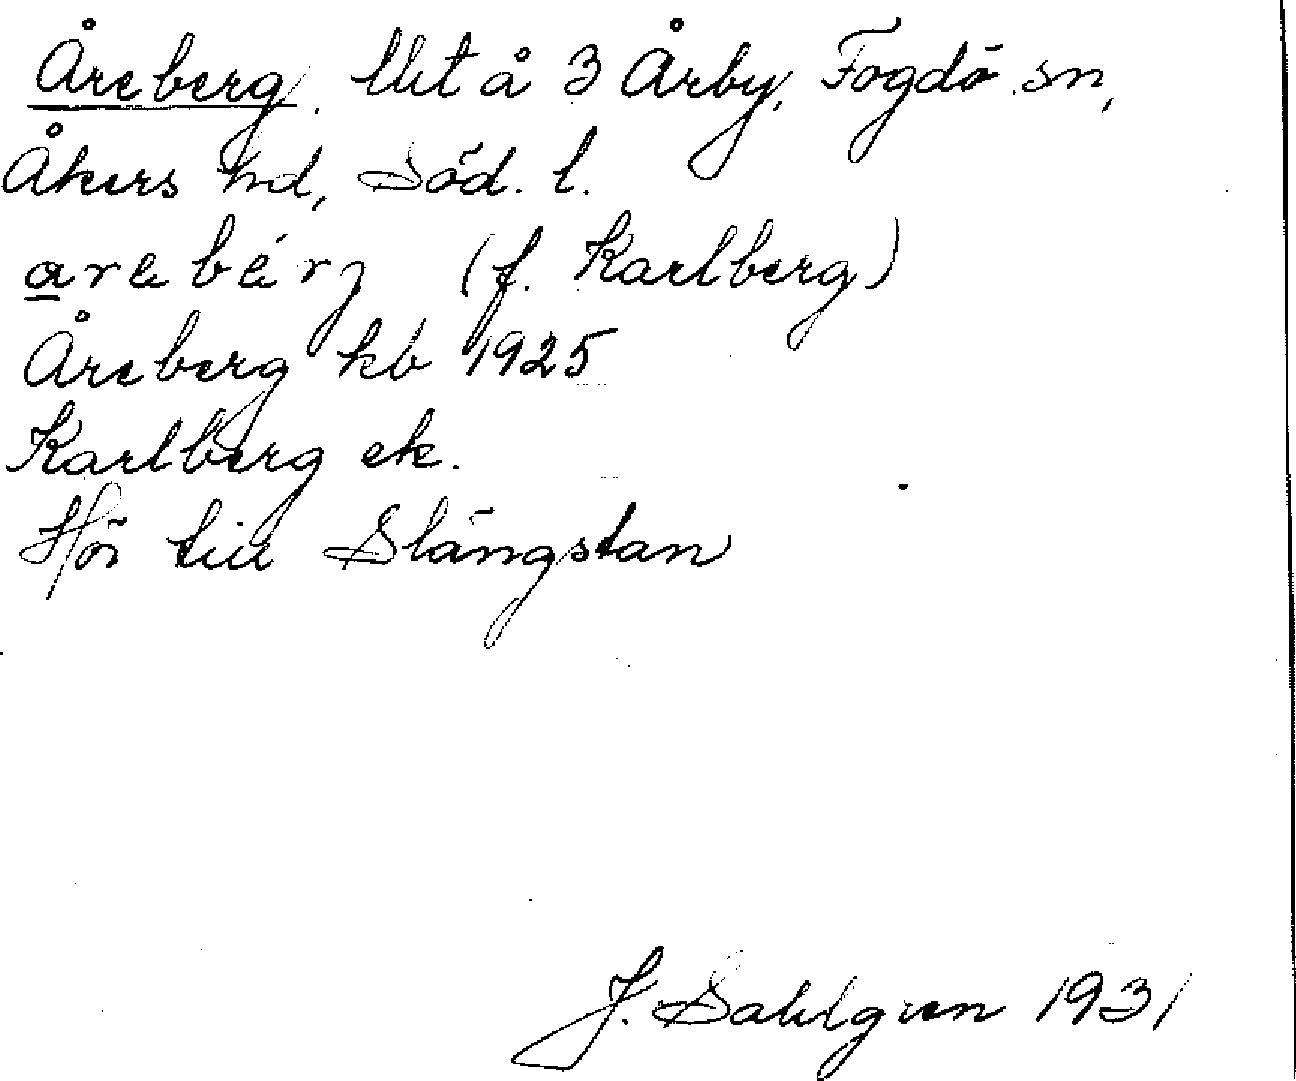 Åreberg, Utt å 3 Årby, Fogdö sn,
Åkers hd, Söd. l.
arebérj (f. Karlberg)
Åreberg kb 1925
Karlberg ek.
Hör till Slängstan
J. Sahlgren 1931